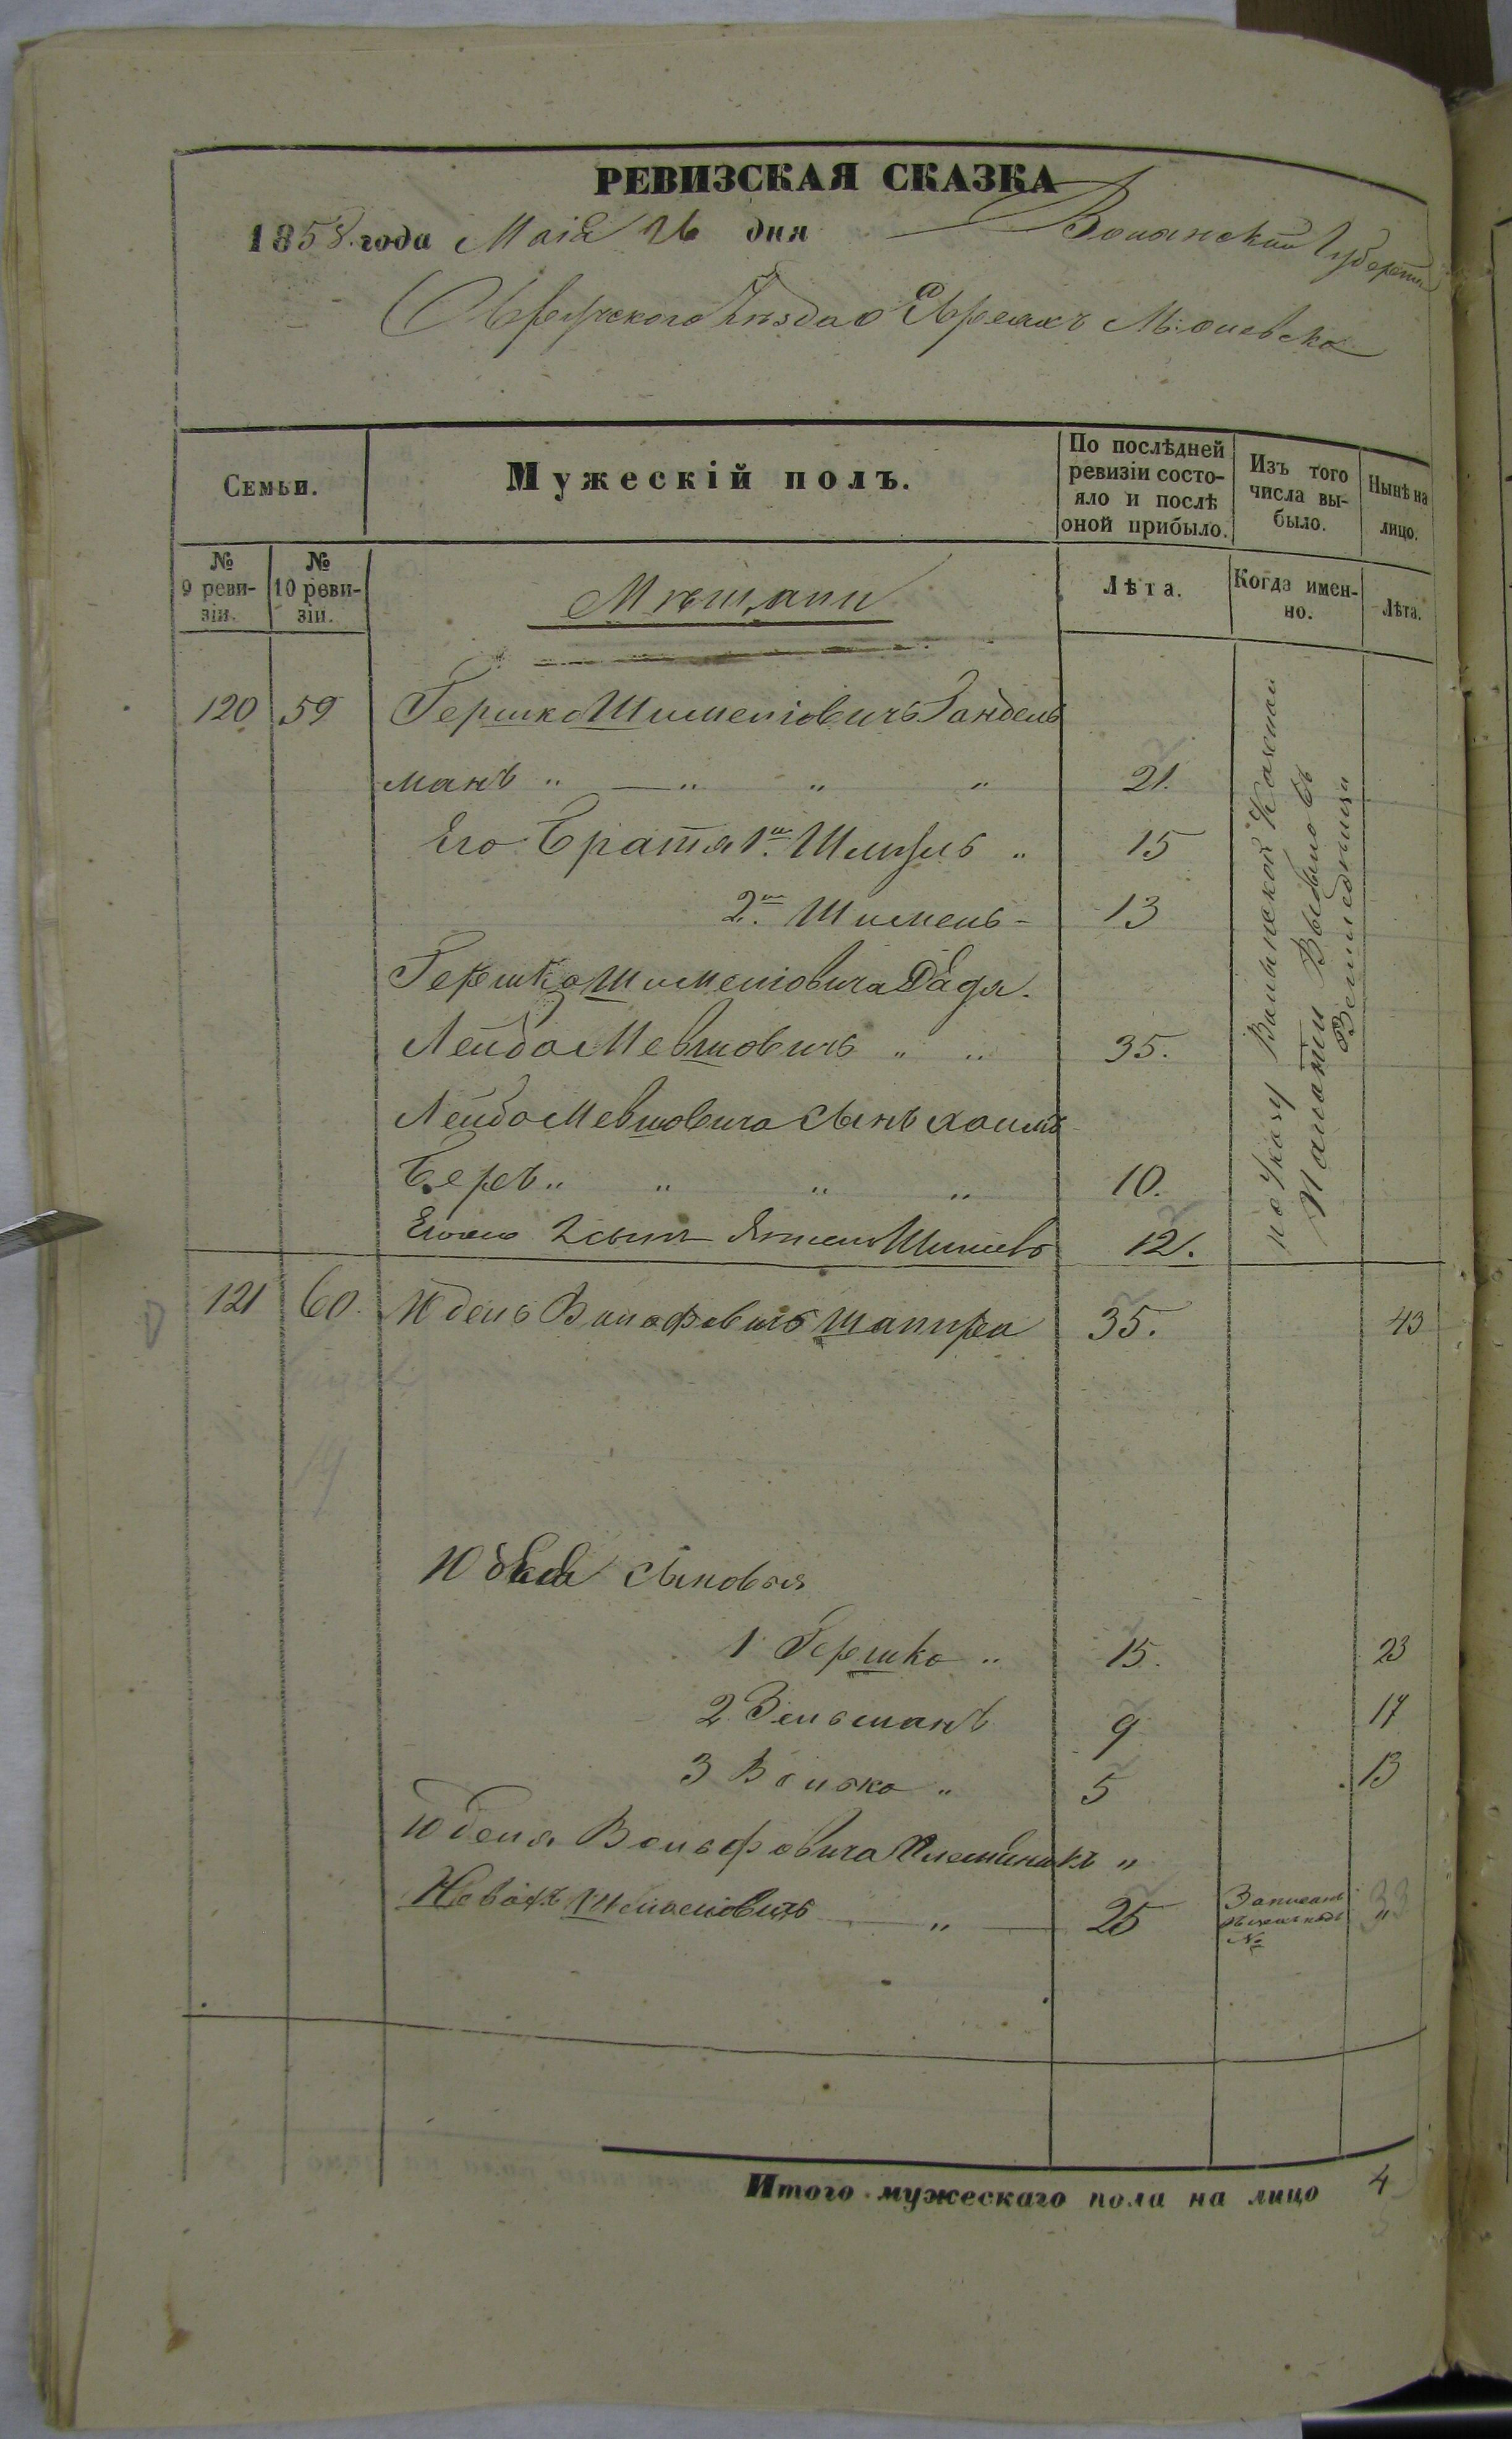 РЕВИЗСКАЯ СКАЗКА
1858. года Маія 26 дня Волынской Губерніи
Овручского Уѣзда о Евреахъ М:
Семьи.
Мужескій полъ.
По послѣдней ревизіи состояло и послѣ оной прибыло.
Изъ того числа выбыло.
Нынѣ на лицо.
№ 9 ревизіи.
№ 10 ревизіи.
Мѣщани
Лѣта.
Когда именно.
Лѣта.
120 59 Гершко Шимеліовичъ Гандель
манъ " — " " " 21.
Его Братя 1й. "  15
2й. Шимель - 13
Гершко Шимеліовича Дядя.
Лейба Мевшовичъ " " 35.
Лейбо Мевшовича сынъ Хаимъ
Беръ " " " " 10.
Его 2 сынъ 12.
по Указу Волынской Казенной
Палаты Выбыло въ
121 60. Юдель Вольфовичъ Шапира 35. 43
Юделя сыновья
1 Гершко " 15. 23
2 Зельманъ 9 17
3 Волько " 5 13
Юделя Вольфовича Племяникъ "
— " — 25 Записанъ
№ "
Итого мужескаго пола на лицо 4